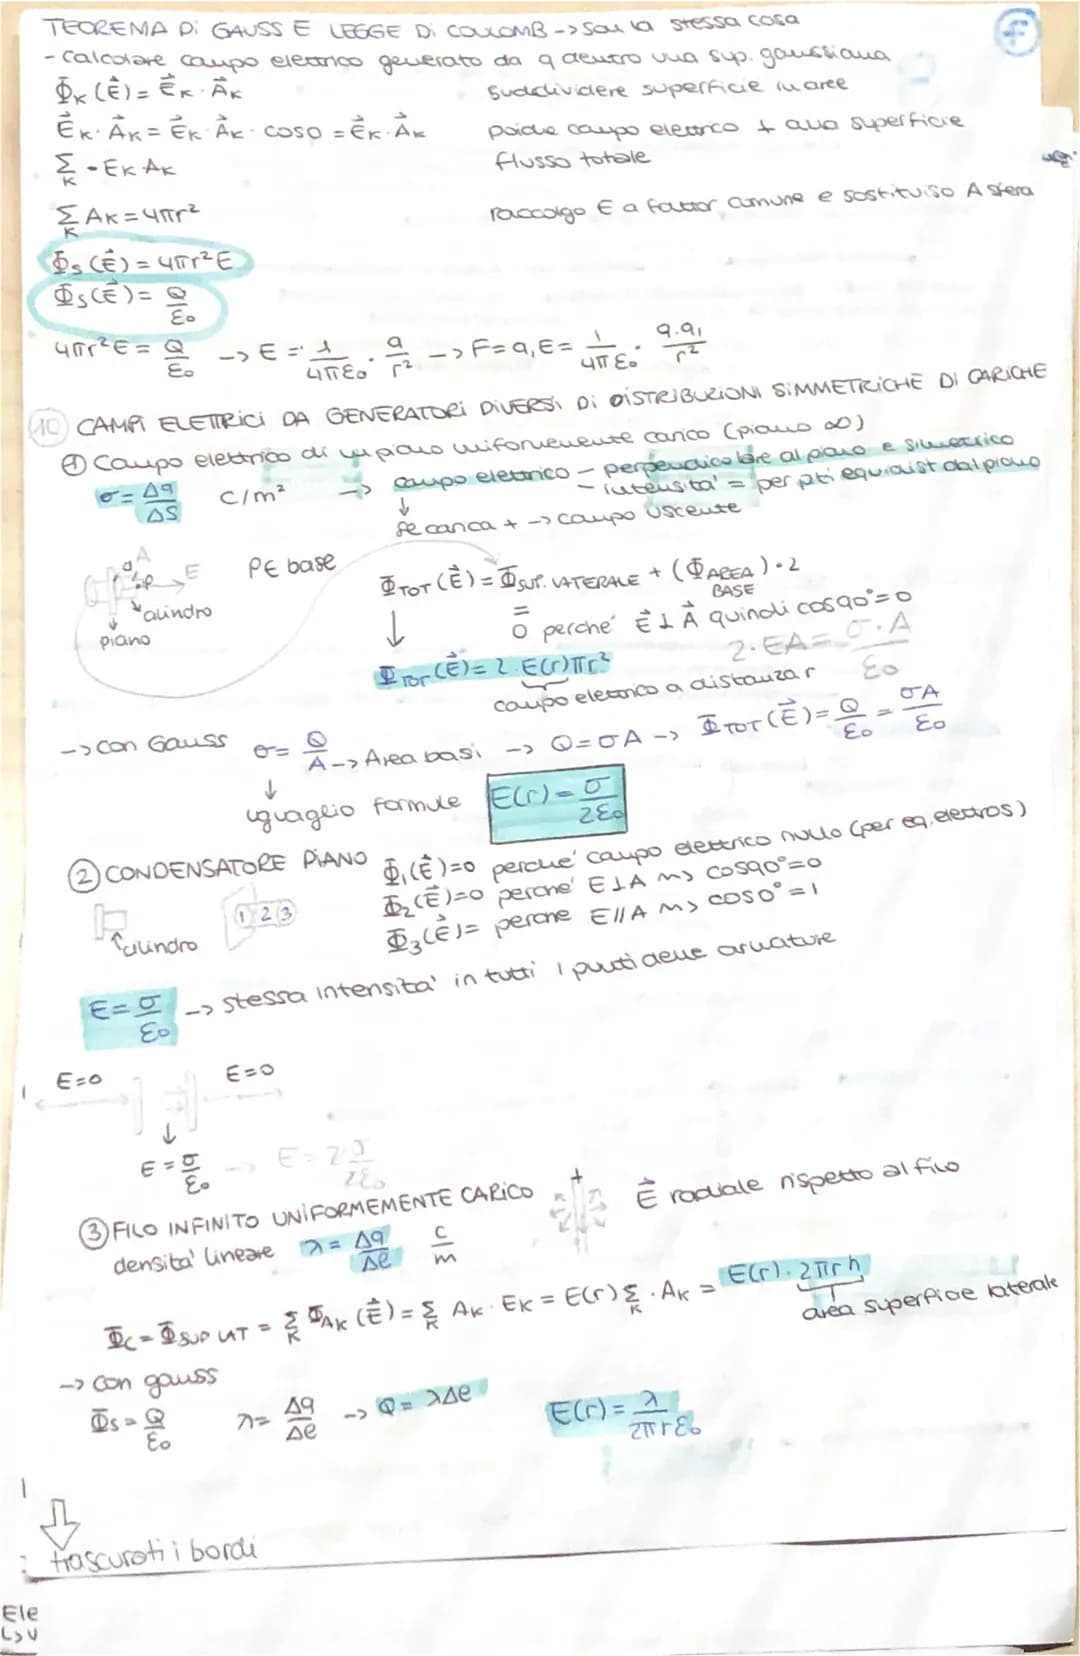 TEOREMA Di GAUSS E LEGGE Di COULOMB -> Son la stessa cosa
- Calcolare campo elettrico generato da q dentro una sup. gaussiana
Φk (E⃗) = E⃗k · A⃗k suddividere superficie in aree
E⃗k · A⃗k = E⃗k · A⃗k · cos0 = E⃗k · A⃗k poiché campo elettrico ⊥ alla superficie
Σk · Ek Ak flusso totale
Σk Ak = 4πr² raccolgo E a fattor comune e sostituiso A sfera
Φs (E⃗) = 4πr²E
Φs (E⃗) = Q/ε₀
4πr²E = Q/ε₀ -> E = 1/4πε₀ · q/r² -> F = q₁E = 1/4πε₀ · q·q₁/r²
10 CAMPi ELETTRiCi DA GENERATORi DiVERSi Di DiSTRiBUZiONi SiMMETRiCHE Di CARiCHE
① Campo elettrico di un piano uniformemente carico (piano ∞)
σ = Δq/ΔS C/m² -> campo elettrico - perpendicolare al piano e simmetrico
- intensita' = per pti equidist dal piano
↓
se carica + -> campo uscente
A
E
P∈ base
cilindro
piano
ΦTOT (E⃗) = ΦSUP. LATERALE + (ΦAREA BASE) · 2
↓ = 0 perche' E⃗ ⊥ A⃗ quindi cos90° = 0
2·EA = σ·A/ε₀
ΦTOT (E⃗) = 2 · E(r)πr²
campo elettrico a distanza r
-> con Gauss σ = Q/A -> Area basi -> Q = σA -> ΦTOT (E⃗) = Q/ε₀ = σA/ε₀
↓
uguaglio formule E(r) = σ/2ε₀
② CONDENSATORE PiANO Φ₁(E⃗)=0 perche' campo elettrico nullo (per eq. elettros)
1 2 3 Φ₂(E⃗)=0 perche' E⊥A ~> cos90°=0
cilindro Φ₃(E⃗)= perche E//A ~> cos0°=1
E = σ/ε₀ -> stessa intensita' in tutti i punti delle armature
E=0 E=0
↓
E = σ/ε₀ -> E = 2·σ/2ε₀
③ FiLO INFiNiTO UNiFORMEMENTE CARiCO + E⃗ radiale rispetto al filo
densita' lineare λ = Δq/Δℓ C/m
Φc = ΦSUP LAT = Σk ΦAk (E⃗) = Σk Ak · Ek = E(r) Σk · Ak = E(r) · 2πr h
area superficie laterale
-> con gauss
Φs = Q/ε₀ λ = Δq/Δℓ -> Q = λΔℓ E(r) = λ/2πrε₀
trascurati i bordi
Ele